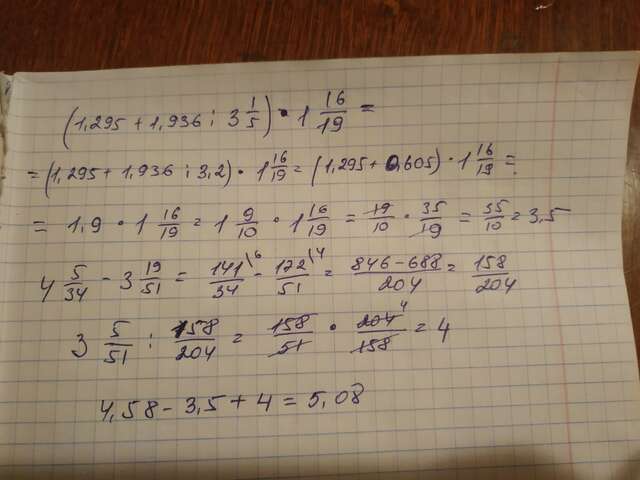 (1,295 + 1,936 : 3 1/5) · 1 16/19 =
= (1,295 + 1,936 : 3,2) · 1 16/19 = (1,295 + 0,605) · 1 16/19 =
= 1,9 · 1 16/19 = 1 9/10 · 1 16/19 = 19/10 · 35/19 = 35/10 = 3,5
4 5/34 - 3 19/51 = 141/34 \6 - 172/51 \4 = 846-688/204 = 158/204
3 5/51 : 158/204 = 158/51 · 204 4/158 = 4
4,58 - 3,5 + 4 = 5,08